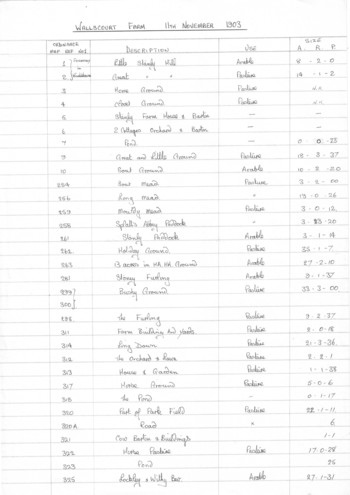 WALLSCOURT FARM 11TH NOVEMBER 1903
SIZE
ORDNANCE MAP REF NO. DESCRIPTION USE A. R. P.
1 Little Stingly Hill Arable 8 . 2 . 0
2 Great " " Pasture 14 . 1 . 2
3 Home Ground Pasture
4 Ground Pasture
5 Farm House & Barton — —
6 2 Cottages Orchard & Barton — —
7 Pond — 0 . 0 . 23
9 Great and Little Ground Pasture 18 . 3 . 37
10 Goat Ground Arable
254 Goat Mead Pasture 3 . 2 . 00
256 Long Mead " 13 . 0 . 26
257 Mead Pasture 3 . 0 . 12
258 Abbey Paddock "
261 Paddock Arable 3 . 1 . 14
262 Holiday Ground Pasture 26 . 1 . 7
263 13 acres in HA HA Ground Arable 27 . 2 . 10
281 Stoney Furlong Arable 9 . 1 . 37
299 Bushy Ground Pasture 33 . 3 . 00
300
298 The Furlong Pasture 9 . 2 . 37
311 Farm Building And Yards Pasture 2 . 0 . 18
314 Long Down Pasture 21 . 3 . 36
312 The Orchard & Pasture 2 . 2 . 1
313 House & Garden Pasture 1 . 1 . 38
317 Horse Ground Pasture 5 . 0 . 6
318 The Pond — 0 . 1 . 17
320 Part of Park Field Pasture 22 . 1 . 11
320A Road " 6
321 Cow Barton & Buildings 1 . 1
322 Home Paddock Pasture 17 . 0 . 28
323 Pond 25
325 & Withy Bed Arable 27 . 1 . 31